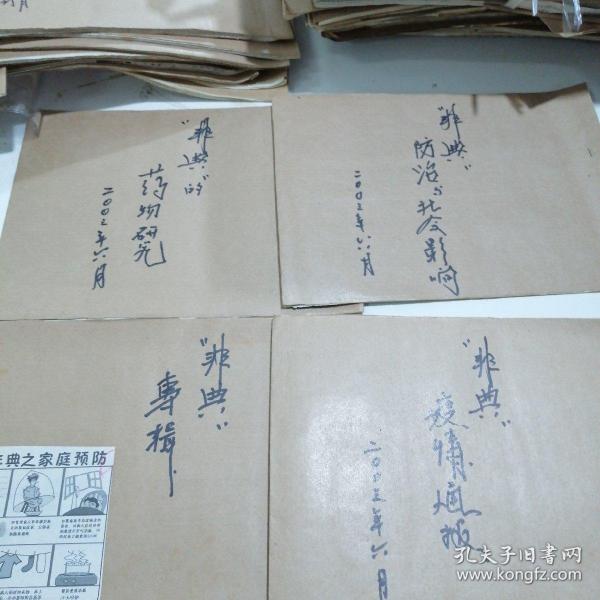 "非典"的
药物研究
二00三年六月
"非典"
防治与社会影响
二00三年六月
"非典"
專辑
"非典"
疫情通报
二00三年六月
非典之家庭预防
孔夫子旧书网
www.kongfz.com